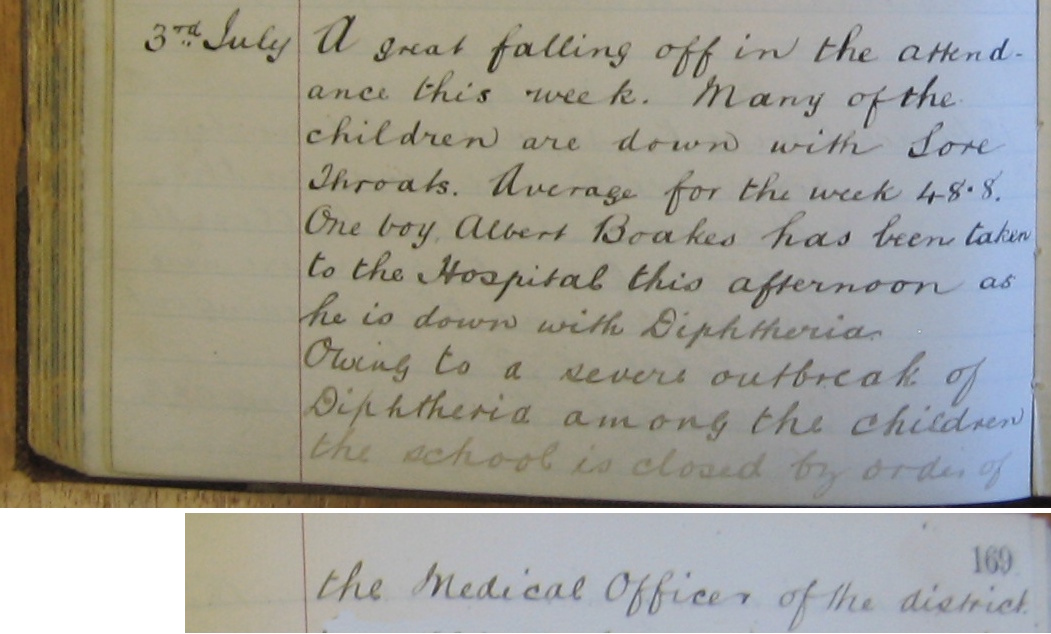 3rd July A great falling off in the attend-
ance this week. Many of the
children are down with Sore
Throats. Average for the week 48.8.
One boy, Albert Boakes has been taken
to the Hospital this afternoon as
he is down with Diphtheria.
Owing to a severe outbreak of
Diphtheria among the children
the school is closed by order of
169
the Medical Officer of the district.